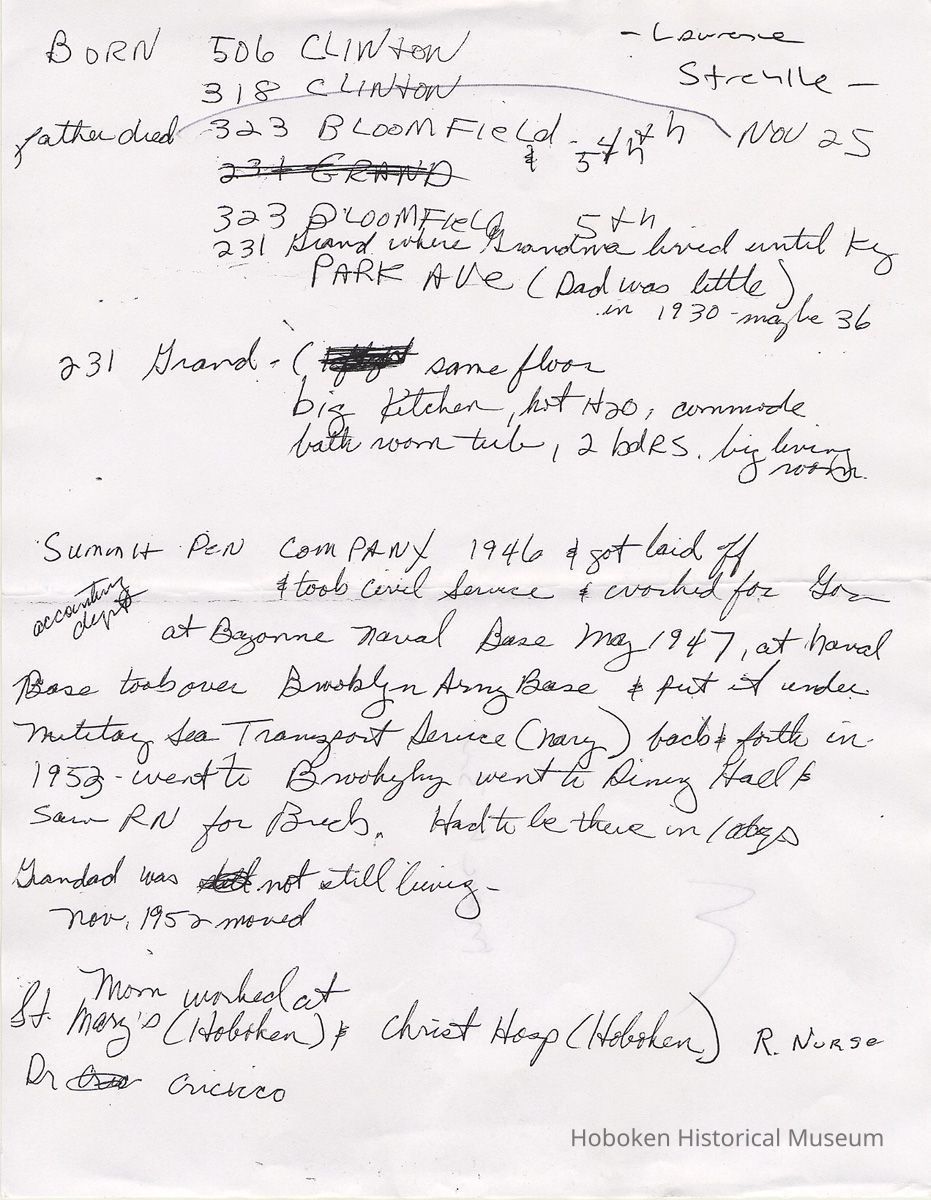 BORN 506 CLINTON
- Laurence
318 CLINTON
Strehlle -
father died 323 BLOOMFIELD - 4th NOV 25
& 5th
231 GRAND
323 BLOOMFIELD 5th
231 Grand where Grandma lived until
PARK AVE (Dad was little)
in 1930 - maybe 36
231 Grand - ( same floor
big Kitchen, hot H2O, commode
bath room tub, 2 bdRS. big living
room.
Summit PEN COMPANY 1946 & got laid off
accounting
dept
& took Civil Service & worked for Gov
at Bayonne Naval Base May 1947, at Naval
Base took over Brooklyn Army Base & put it under
Military Sea Transport Service (navy) back & forth in
1952 - went to Brooklyn went to Dining Hall &
Saw RN for Breck. Had to be there in days
Grandad was not still living -
Nov, 1952 moved
3
Mom worked at
St. Mary's (Hoboken) & Christ Hosp (Hoboken) R. Nurse
Dr
Hoboken Historical Museum